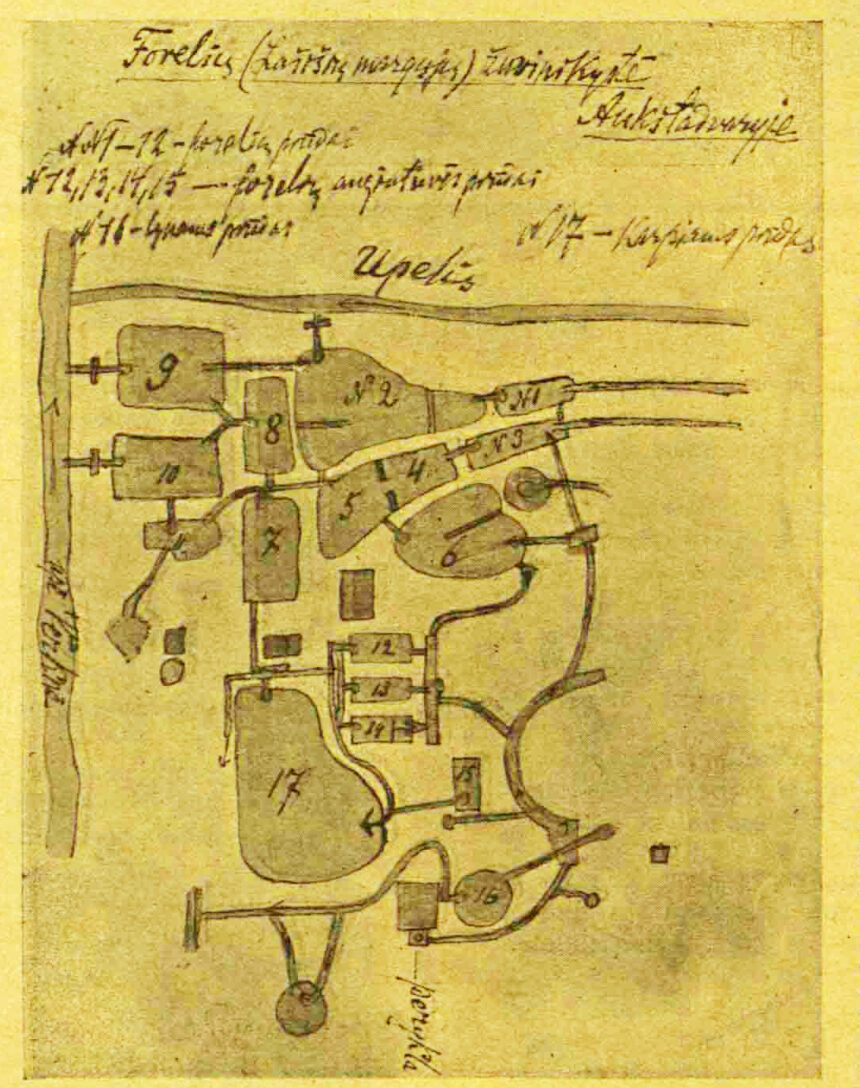 Forelių (Lašišų margųjų) žuvininkystė
Aukštadvaryje
NN1-12 - forelių prūdai
N 12, 13, 14, 15 — forelių augintuvės prūdai
N 16 - lynams prūdas
N 17 - Karpiams prūdas
Upelis
9
N 2
N 1
8
10
4
N 3
5
7
12
13
14
17
15
16
up. Verknė
perykla